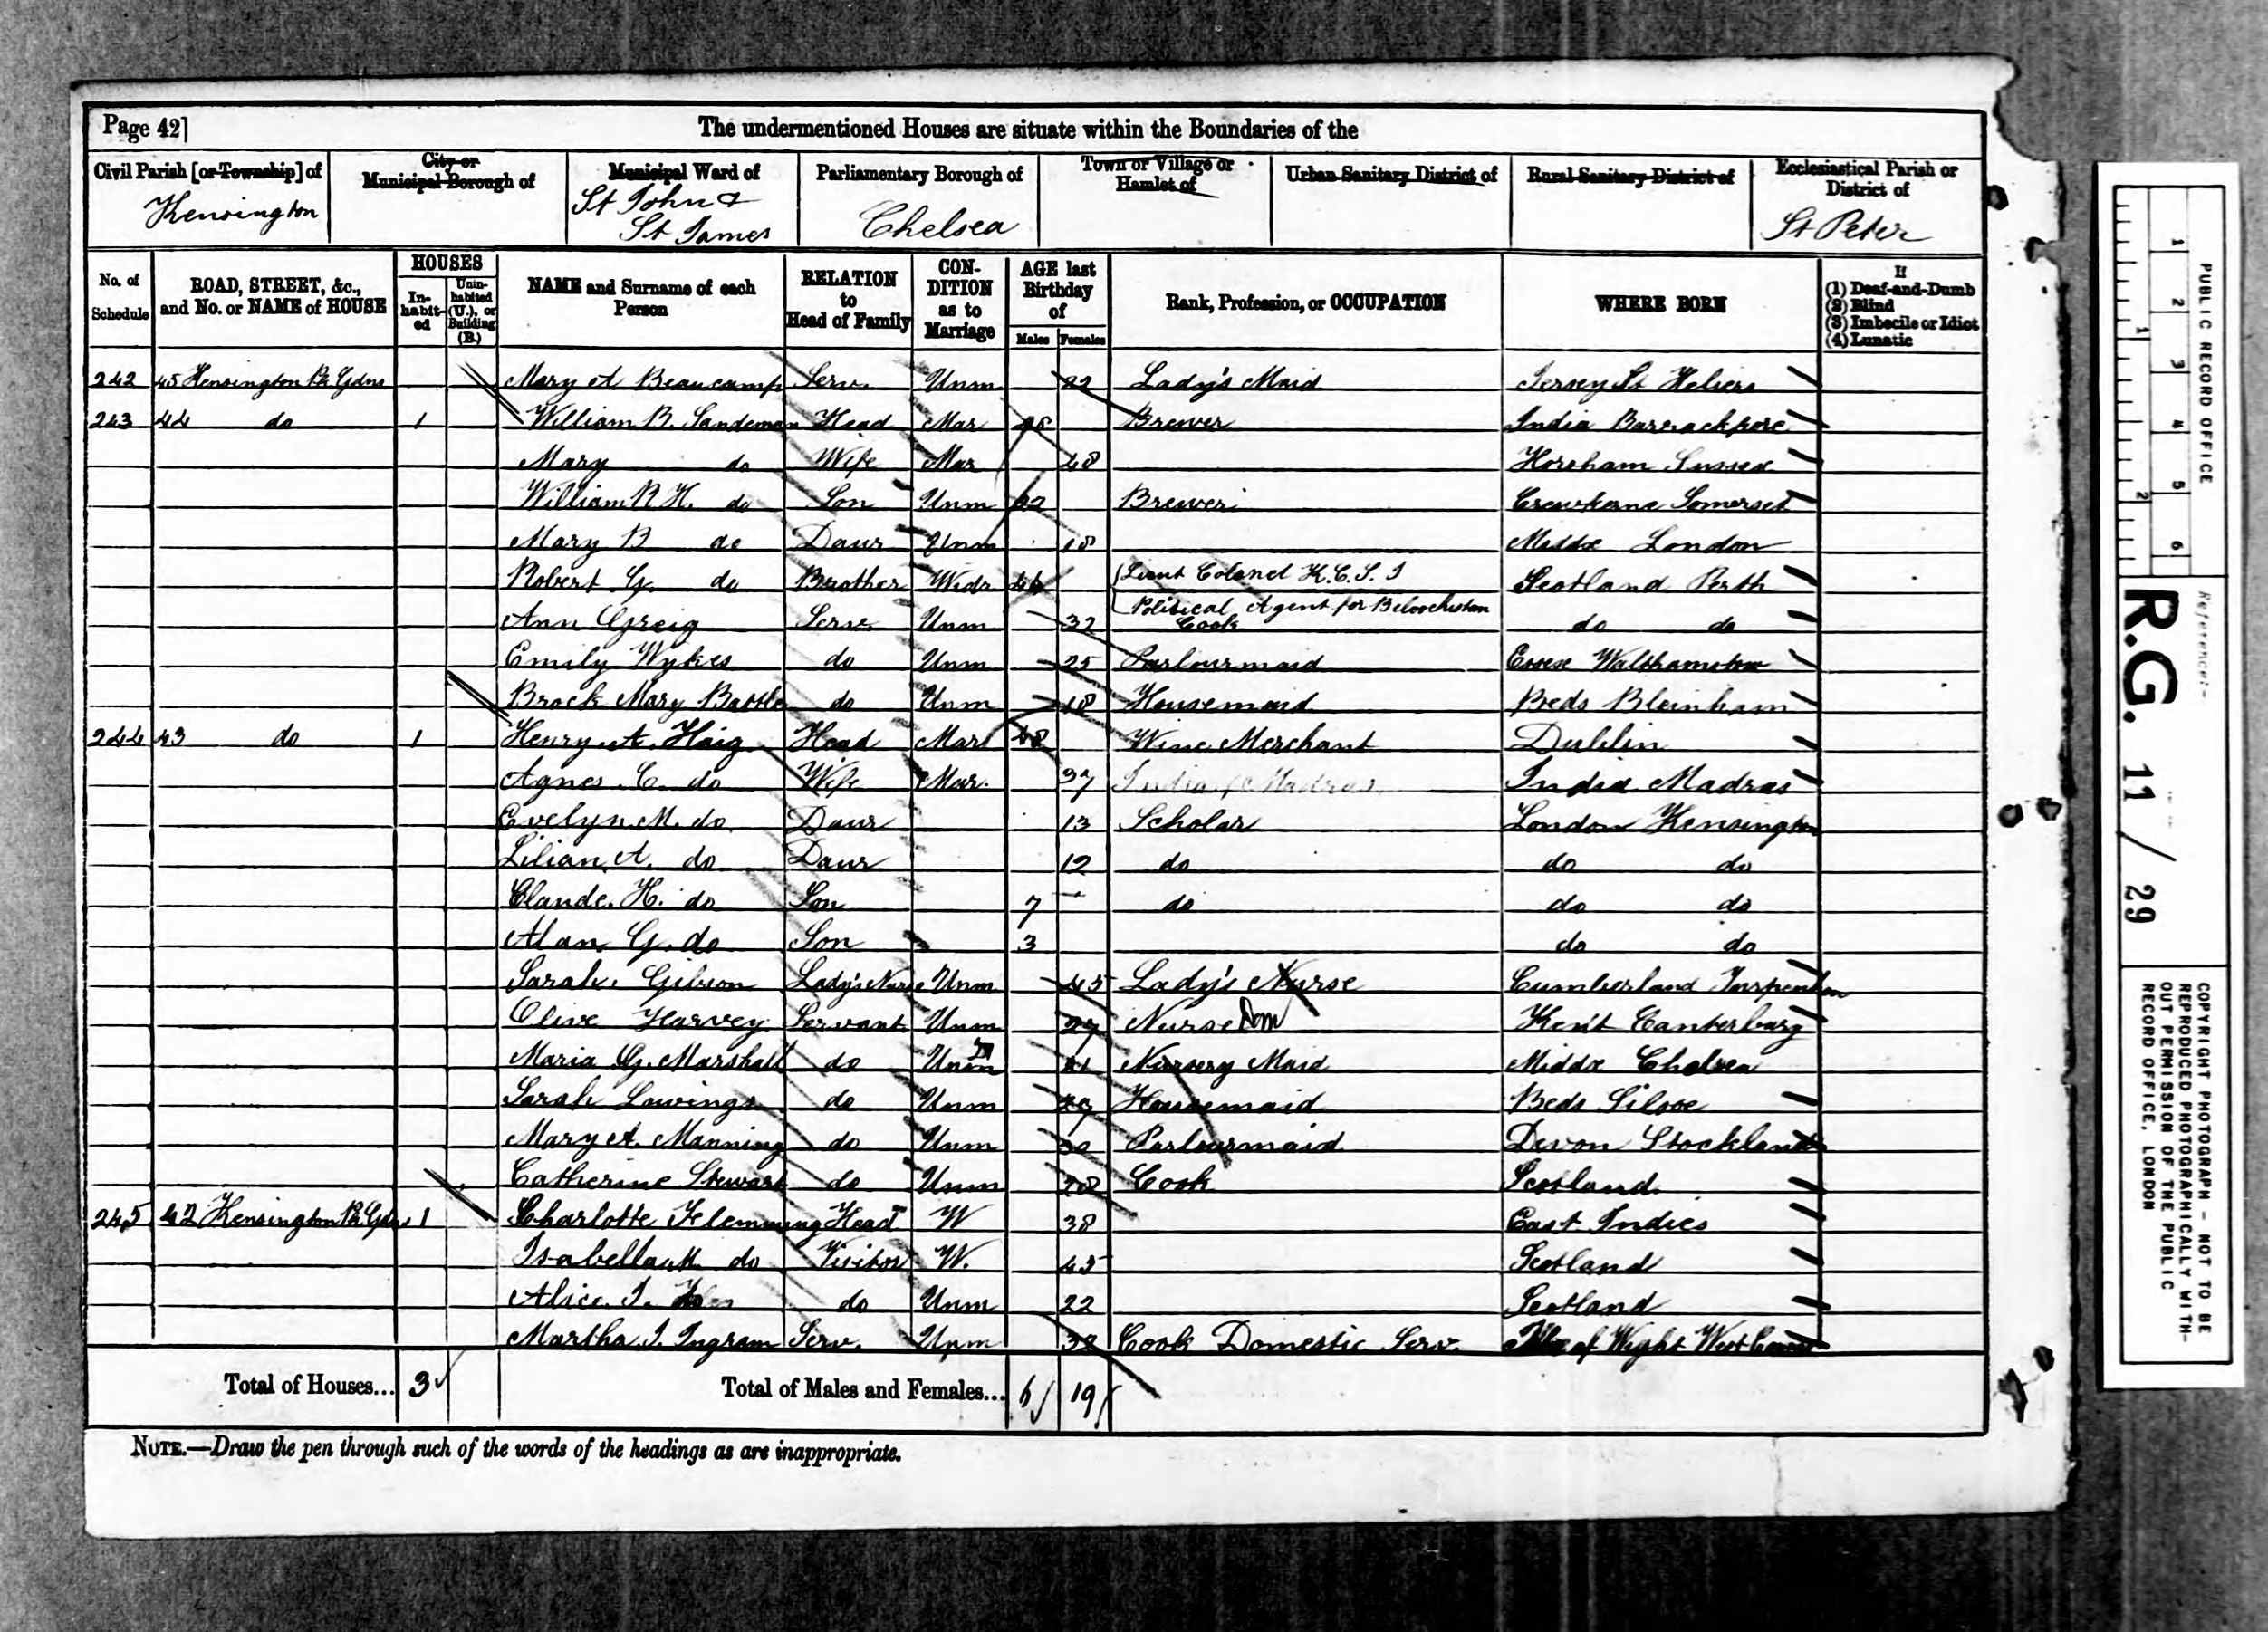 Page 42]
The undermentioned Houses are situate within the Boundaries of the
Civil Parish [or Township] of
City or Municipal Borough of
Municipal Ward of
Parliamentary Borough of
Town or Village or Hamlet of
Urban Sanitary District of
Rural Sanitary District of
Ecclesiastical Parish or District of
Kensington
St John &
St James
Chelsea
St Peter
No. of Schedule
ROAD, STREET, &c., and No. or NAME of HOUSE
HOUSES
In-habit-ed
Unin-habited (U.), or Building (B.)
NAME and Surname of each Person
RELATION to Head of Family
CON-DITION as to Marriage
AGE last Birthday of
Males
Females
Rank, Profession, or OCCUPATION
WHERE BORN
If
(1) Deaf-and-Dumb
(2) Blind
(3) Imbecile or Idiot
(4) Lunatic
242 45 Kensington Pk Gdns Mary A Beaucamp Serv. Unm 22 Lady's Maid Jersey St Heliers
243 44 do 1 William B. Sandeman Head Mar Brewer India Barrackpore
Mary do Wife Mar 48 Horsham Sussex
William R H. do Son Unm 22 Brewer Crewkerne Somerset
Mary B do Daur Unm 18 Middx London
Robert G. do Brother Widr 46 Lieut Colonel K.C.S.I Scotland Perth
Political Agent for Beloochistan
Ann Greig Serv. Unm 32 Cook do do
Emily Wykes do Unm 25 Parlourmaid Essex Walthamstow
Brock Mary Battle do Unm 18 Housemaid Beds Bleinham
244 43 do 1 Henry A. Haig Head Mar 48 Wine Merchant Dublin
Agnes C. do Wife Mar. 37 India Madras India Madras
Evelyn M. do Daur 13 Scholar London Kensington
Lilian A. do Daur 12 do do do
Claude. H. do Son 7 do do do
Alan G. do Son 3 do do
Sarah. Gibson Lady's Nurse Unm 45 Lady's Nurse Cumberland
Olive Harvey Servant Unm 29 Nurse Dom Kent Canterbury
Maria G. Marshall do Unm 21 Nursery Maid Middx Chelsea
Sarah Lowings do Unm 29 Housemaid Beds Silsoe
Mary A. Manning do Unm 30 Parlourmaid Devon Stockland
Catherine Stewart do Unm 28 Cook Scotland
245 42 Kensington Pk Gdns 1 Charlotte Flemming Head W 38 East Indies
Isabella M do Visitor W. 45 Scotland
Alice. I. do Unm 22 Scotland
Martha J. Ingram Serv. Unm 32 Cook Domestic Serv. Isle of Wight West Cowes
Total of Houses... 3
Total of Males and Females... 6 19
NOTE.—Draw the pen through such of the words of the headings as are inappropriate.
PUBLIC RECORD OFFICE
1 2 3 4 5 6
1 2
Reference:-
R.G. 11 / 29
COPYRIGHT PHOTOGRAPH - NOT TO BE
REPRODUCED PHOTOGRAPHICALLY WITH-
OUT PERMISSION OF THE PUBLIC
RECORD OFFICE, LONDON